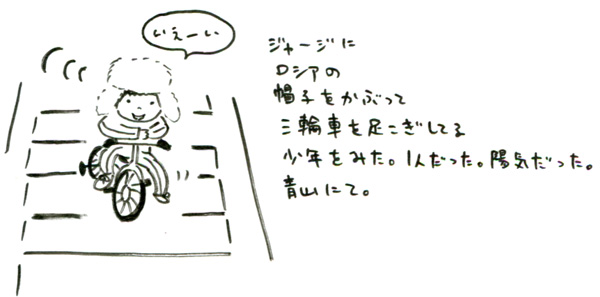 いぇーい
ジャージに
ロシアの
帽子をかぶって
三輪車を足こぎしてる
少年をみた。1人だった。陽気だった。
青山にて。